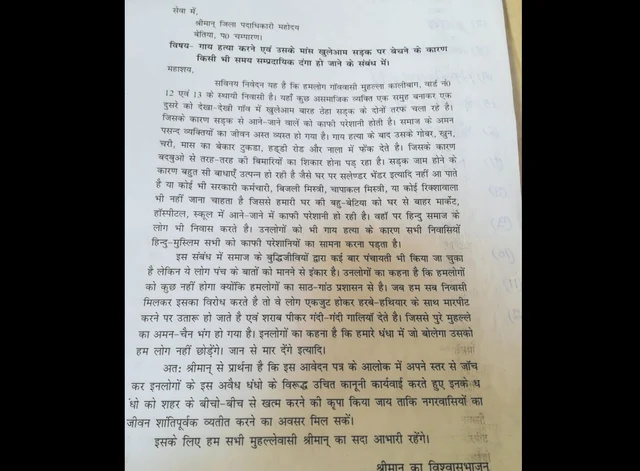 सेवा में,
श्रीमान् जिला पदाधिकारी महोदय
बेतिया, प0 चम्पारण।
विषय- गाय हत्या करने एवं उसके मांस खुलेआम सड़क पर बेचने के कारण
किसी भी समय सम्प्रदायिक दंगा हो जाने के संबंध में।
महाशय,
सविनय निवेदन यह है कि हमलोग गाँववासी मुहल्ला कालीबाग, वार्ड नं0
12 एवं 13 के स्थायी निवासी है। यहाँ कुछ असमाजिक व्यक्ति एक समूह बनाकर एक
दुसरे को देखा-देखी गाँव में खुलेआम बारह ठेहा सड़क के दोनों तरफ चला रहे है।
जिसके कारण सड़क से आने-जाने वालें को काफी परेशानी होती है। समाज के अमन
पसन्द व्यक्तियों का जीवन अस्त व्यस्त हो गया है। गाय हत्या के बाद उसके गोबर, खुन,
चरी, मास का बेकार टुकडा, हड्डी रोड और नाला में फेंक देते है। जिसके कारण
बदबुओ से तरह-तरह की बिमारियों का शिकार होना पड़ रहा है। सड़क जाम होने के
कारण बहुत सी बाधाएँ उत्पन्न हो रही है जैसे घर पर सलेण्डर भेंडर इत्यादि नहीं आ पाते
है या कोई भी सरकारी कर्मचारी, बिजली मिस्त्री, चापाकल मिस्त्री, या कोई रिक्शावाला
भी नहीं जाना चाहता है जिससे हमारी घर की बहु-बेटिया को घर से बाहर मार्केट,
हॉस्पीटल, स्कूल में आने-जाने में काफी परेशानी हो रही है। वहाँ पर हिन्दु समाज के
लोग भी निवास करते है। उनलोगों को भी गाय हत्या के कारण सभी निवासियों
हिन्दु-मुस्लिम सभी को काफी परेशानियों का सामना करना पड़ता है।
इस संबंध में समाज के बुद्धिजीवियों द्वारा कई बार पंचायती भी किया जा चुका
है लेकिन ये लोग पंच के बातों को मानने से इंकार है। उनलोगों का कहना है कि हमलोगों
को कुछ नहीं होगा क्योंकि हमलोगों का साठ-गांठ प्रशासन से है। जब हम सब निवासी
मिलकर इसका विरोध करते है तो वे लोग एकजुट होकर हरबे-हथियार के साथ मारपीट
करने पर उतारू हो जाते है एवं शराब पीकर गंदी-गंदी गालियाँ देते है। जिससे पुरे मुहल्ले
का अमन-चैन भंग हो गया है। इनलोगों का कहना है कि हमारे धंधा में जो बोलेगा उसको
हम लोग नहीं छोड़ेंगे। जान से मार देंगे इत्यादि।
अतः श्रीमान् से प्रार्थना है कि इस आवेदन पत्र के आलोक में अपने स्तर से जाँच
कर इनलोगों के इस अवैध धंधो के विरूद्ध उचित कानूनी कार्यवाई करते हुए इनके ध
ंधो को शहर के बीचो-बीच से खत्म करने की कृपा किया जाय ताकि नगरवासियों का
जीवन शांतिपूर्वक व्यतीत करने का अवसर मिल सकें।
इसके लिए हम सभी मुहल्लेवासी श्रीमान् का सदा आभारी रहेंगे।
श्रीमान् का विश्वासभाजन